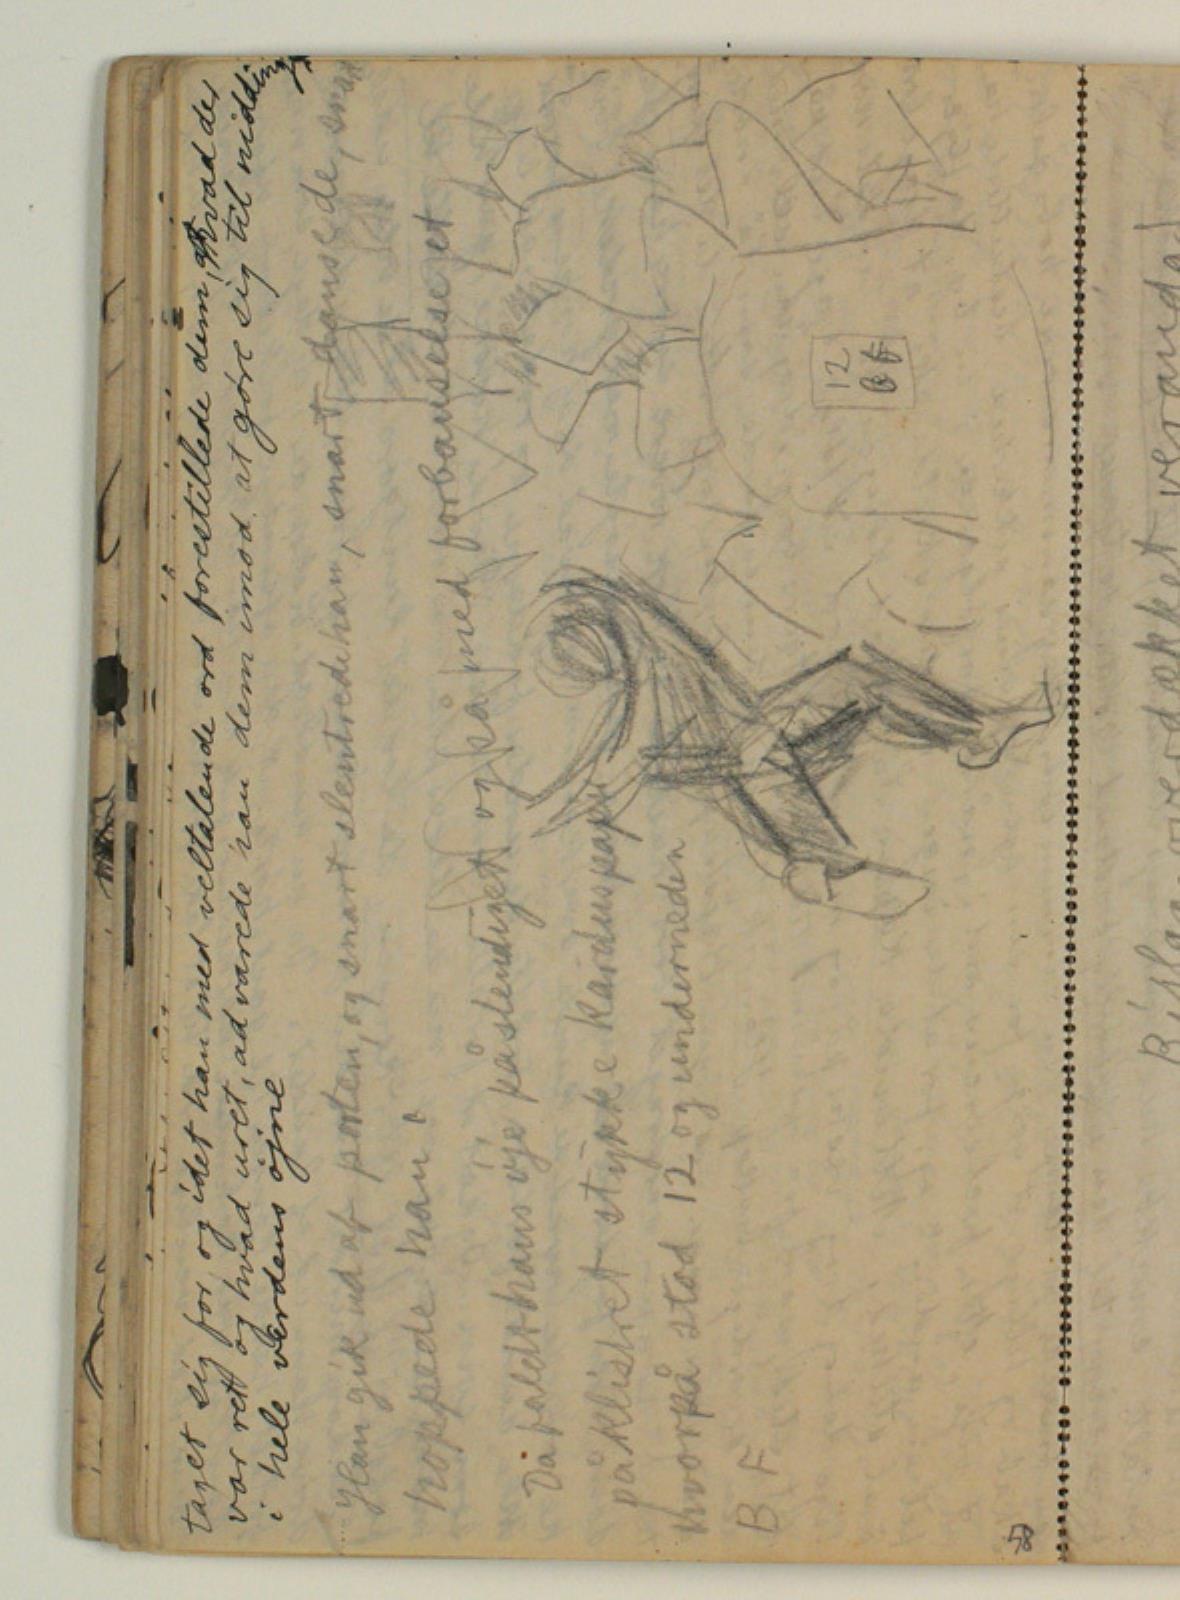 taget sig for og idet han med veltalende ord forestillede dem, hvad der
var rett og hvad uret, advarede han dem imod at göre sig til nidding
i hele verdens öjne
Han gik ud af porten, og snart slentrede han, snart dansede, snart
hoppede han
Da faldt hans öje påslendigt og på med forbauselse
påklistret stykke karduspapir
hvorpå stod 12 og underneden
B F
12
B F
58
Bislag overdækket veranda